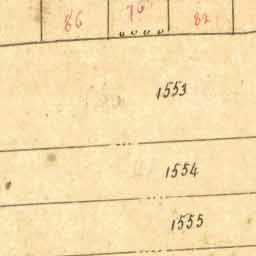 86 76 82
1553
1554
1555